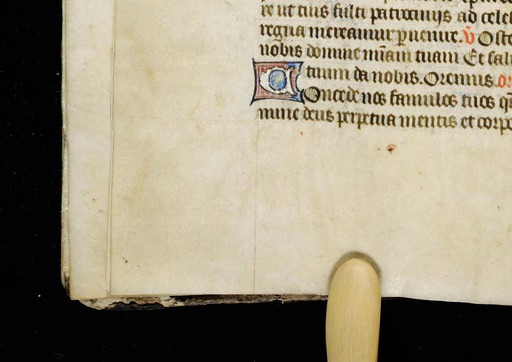 re ut eius fulti patrocinijs ad celes
regna mereamur puenire. V Oste
nobis domine miam tuam Et salu
tuum da nobis. Oremus. or
Concede nos famulos tuos qs
mine deus perpetua mentis et corpo